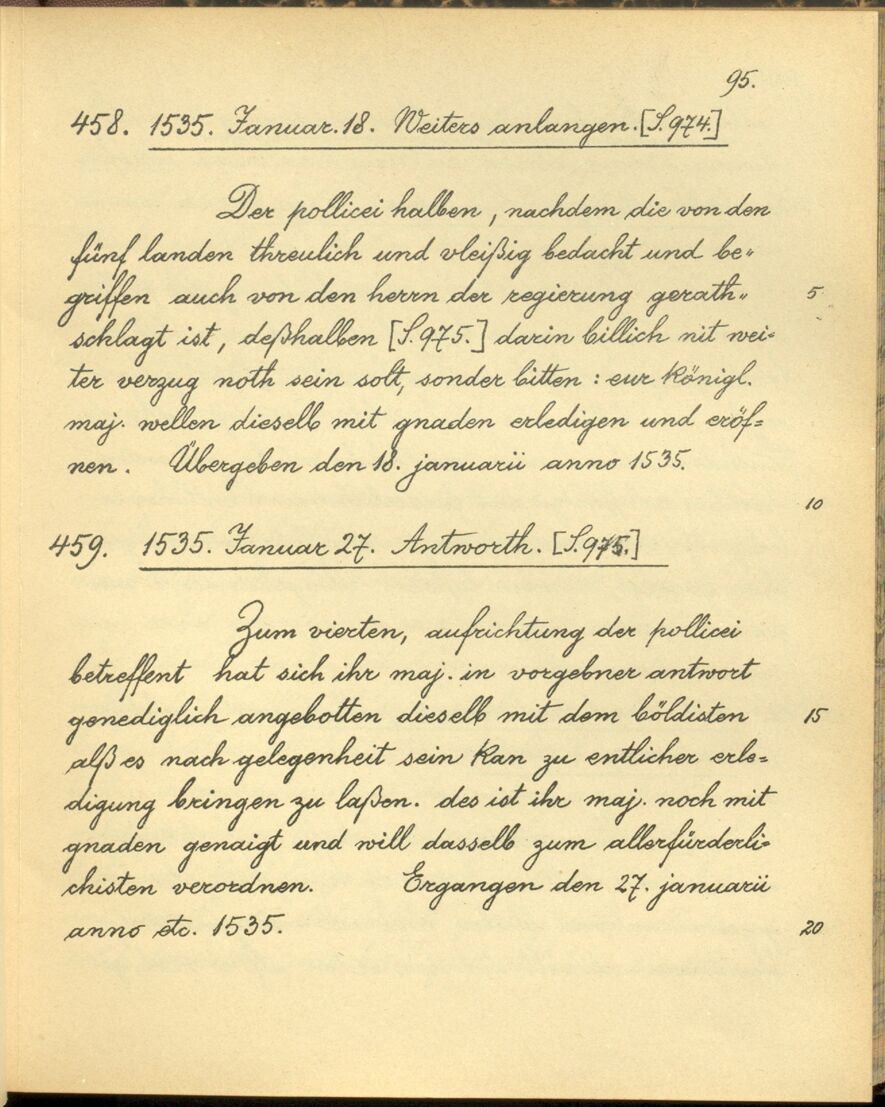 95.
458. 1535. Januar. 18. Weiters anlangen. [S. 974.]
Der pollicei halben, nachdem die von den
fünf landen threulich und vleißig bedacht und be„
griffen auch von den herrn der regierung gerath„ 5
schlagt ist, deßhalben [S. 975.] darin billich nit wei=
ter verzug noth sein solt, sonder bitten: eur königl.
maj. wellen dieselb mit gnaden erledigen und eröf=
nen. Übergeben den 18. januarii anno 1535.
10
459. 1535. Januar 27. Antworth. [S. 975.]
Zum vierten, aufrichtung der pollicei
betreffent hat sich ihr maj. in vorgebner antwort
genediglich angebotten dieselb mit dem böldisten 15
alß es nach gelegenheit sein kan zu entlicher erle=
digung bringen zu laßen. des ist ihr maj. noch mit
gnaden genaigt und will dasselb zum allerfürderli=
chisten verordnen. Ergangen den 27. januarii
anno etc. 1535. 20